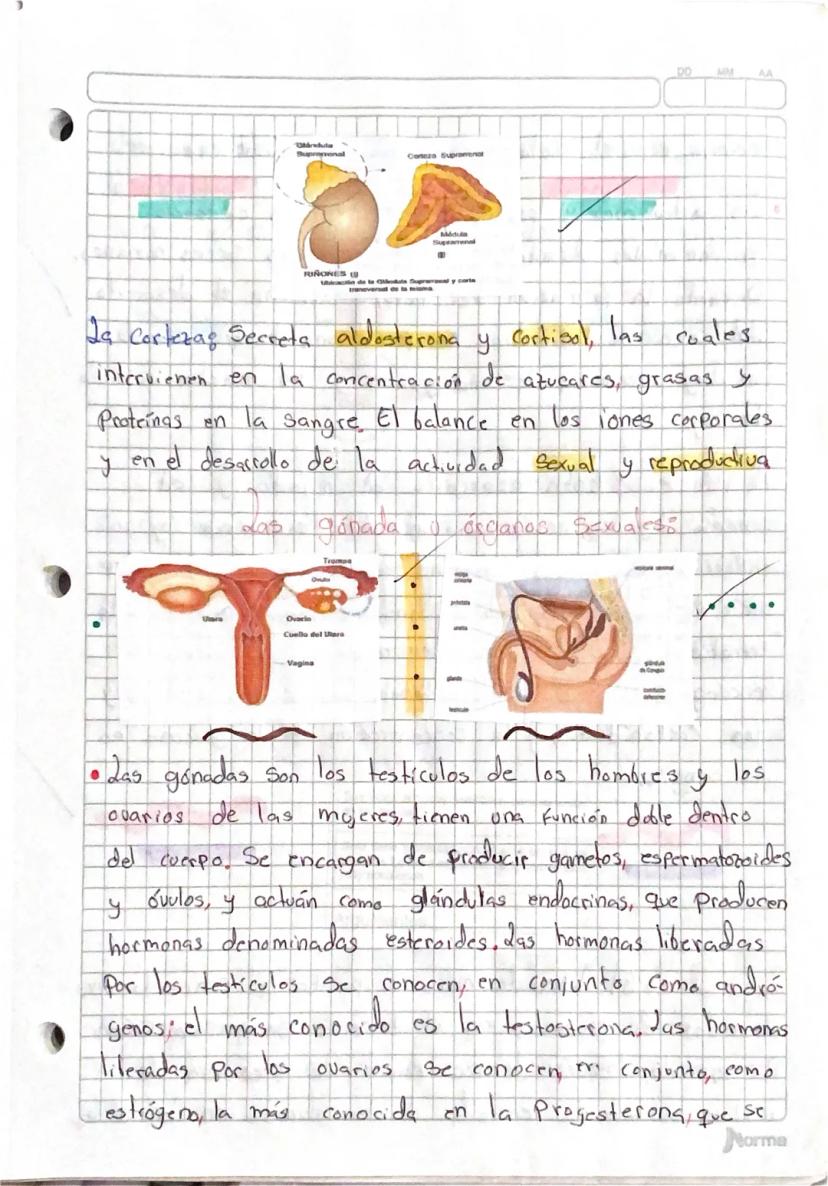 DD MM AA
Glándula
Suprarrenal
Corteza Suprarrenal
Médula
Suprarrenal
RIÑONES
Ubicación de la Glándula Suprarrenal y corte
transversal de la misma.
La Corteza: Secreta aldosterona y cortisol, las cuales
intervienen en la concentración de azucares, grasas y
Proteínas en la sangre. El balance en los iones corporales
y en el desarrollo de la actividad sexual y reproductiva
Las gónada u órganos sexuales:
Trompa
Óvulo
Útero
Ovario
Cuello del Útero
Vagina
vejiga
urinaria
próstata
uretra
glande
testículo
vesícula seminal
glándula
de Cowper
conducto
deferente
Las gónadas son los testículos de los hombres y los
ovarios de las mujeres, tienen una función doble dentro
del cuerpo. Se encargan de producir gametos, espermatozoides
y óvulos, y actuán como glándulas endocrinas, que Producen
hormonas denominadas esteroides. Las hormonas liberadas
Por los testículos se conocen, en conjunto como andró-
genos; el más conocido es la testosterona. Las hormonas
liberadas por los ovarios se conocen, en conjunto, como
estrógeno, la más conocida en la Progesterona, que se
Norma